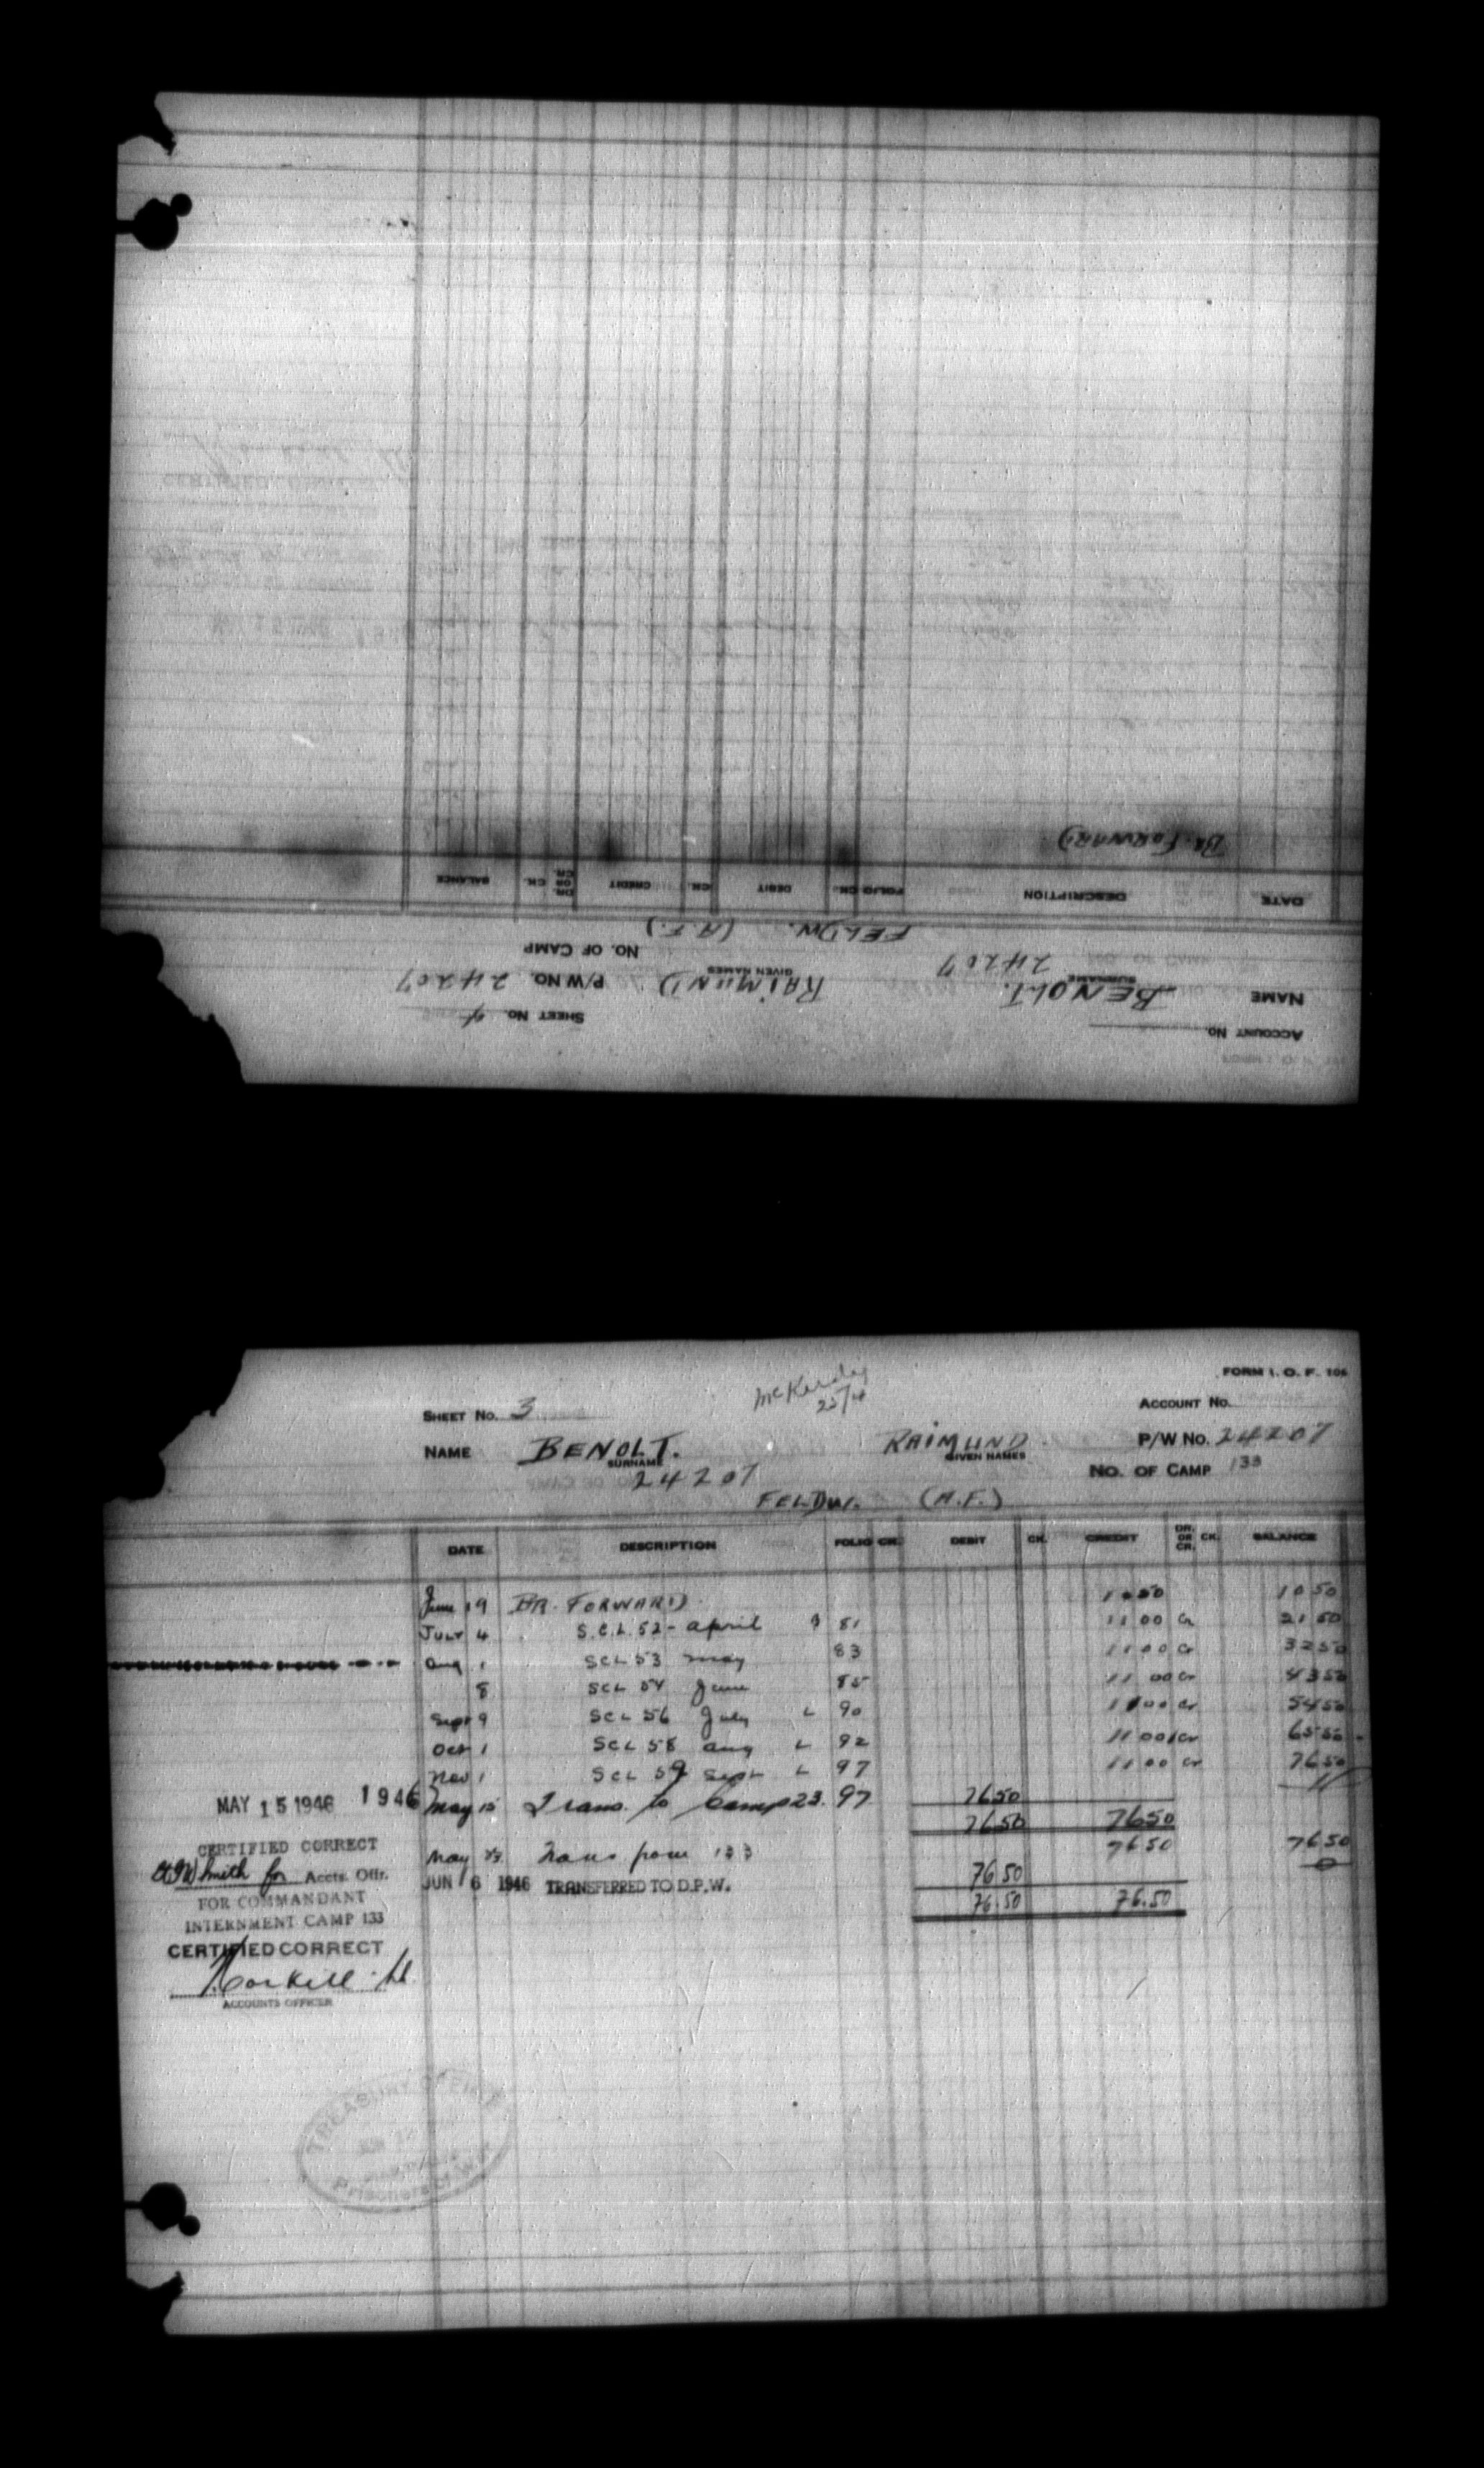 ACCOUNT NO.
SHEET NO. 4
NAME BENOLT. RAIMUND P/W NO. 24207
SURNAME GIVEN NAMES
24207 NO. OF CAMP
FELDW. (A.F.)
DATE DESCRIPTION FOLIO CK. DEBIT CK. CREDIT DR. OR CR. CK. BALANCE
BR. FORWARD
FORM I. O. F. 106
McKerdy
25/4
SHEET NO. 3 ACCOUNT NO.
NAME BENOLT. RAIMUND P/W NO. 24207
SURNAME GIVEN NAMES
24207 NO. OF CAMP 133
FELDW. (A.F.)
DATE DESCRIPTION FOLIO CK. DEBIT CK. CREDIT DR. OR CR. CK. BALANCE
June 19 BR. FORWARD. 10 50 10 50
JULY 4 S.C.L. 52 - april 81 11 00 Cr 21 50
Aug 1 SCL 53 may 83 11 00 Cr 32 50
8 SCL 54 June 85 11 00 Cr 43 50
Sept 9 SCL 56 July L 90 11 00 Cr 54 50
Oct 1 SCL 58 aug L 92 11 00 Cr 65 50
Nov 1 SCL 59 Sept L 97 11 00 Cr 76 50
MAY 15 1946 1946 May 15 Trans. to Camp 23. 97 76 50
76 50 76 50
CERTIFIED CORRECT
May Trans from 133 76 50 76 50
Smith for Accts. Offr.
JUN 6 1946 TRANSFERRED TO D.P.W. 76 50 0
FOR COMMANDANT
76.50 76.50
INTERNMENT CAMP 133
CERTIFIED CORRECT
ACCOUNTS OFFICER
TREASURY OFFICE
Prisoners of War